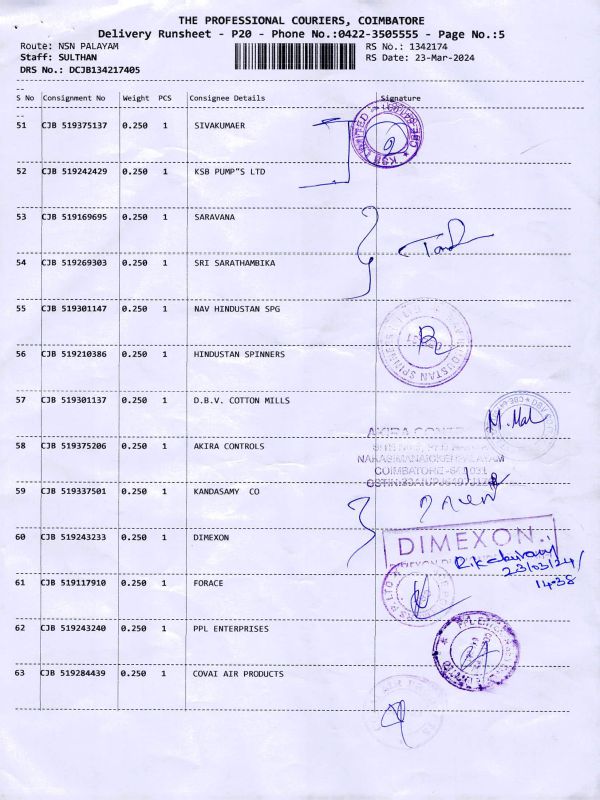 THE PROFESSIONAL COURIERS, COIMBATORE
Delivery Runsheet - P20 - Phone No.:0422-3505555 - Page No.:5
Route: NSN PALAYAM RS No.: 1342174
Staff: SULTHAN RS Date: 23-Mar-2024
DRS No.: DCJB134217405
--
S No Consignment No Weight PCS Consignee Details Signature
--
51 CJB 519375137 0.250 1 SIVAKUMAER
KSB LIMITED
52 CJB 519242429 0.250 1 KSB PUMP"S LTD
53 CJB 519169695 0.250 1 SARAVANA
54 CJB 519269303 0.250 1 SRI SARATHAMBIKA
55 CJB 519301147 0.250 1 NAV HINDUSTAN SPG
56 CJB 519210386 0.250 1 HINDUSTAN SPINNERS
57 CJB 519301137 0.250 1 D.B.V. COTTON MILLS
M. Mal
AKIRA
58 CJB 519375206 0.250 1 AKIRA CONTROLS
COIMBATORE
59 CJB 519337501 0.250 1 KANDASAMY CO
60 CJB 519243233 0.250 1 DIMEXON
DIMEXON
23/03/24/
14:38
61 CJB 519117910 0.250 1 FORACE
62 CJB 519243240 0.250 1 PPL ENTERPRISES
63 CJB 519284439 0.250 1 COVAI AIR PRODUCTS